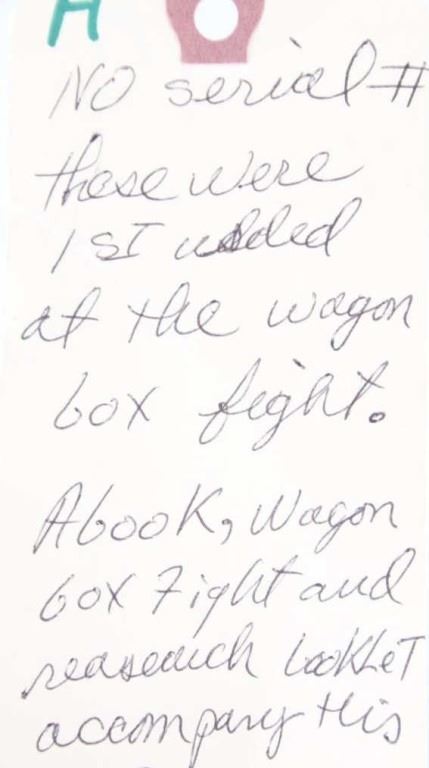 NO serial #
these were
1ST
at the wagon
box fight.
A book, Wagon
box Fight and
reasearch bookLeT
accompany this